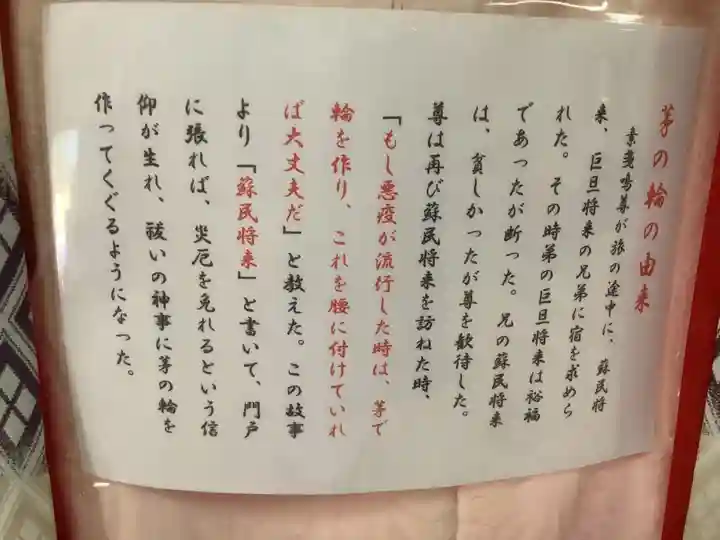 茅の輪の由来
素戔嗚尊が旅の途中に、蘇民将
来、巨旦将来の兄弟に宿を求めら
れた。その時弟の巨旦将来は裕福
であったが断った。兄の蘇民将来
は、貧しかったが尊を歓待した。
尊は再び蘇民将来を訪ねた時、
「もし悪疫が流行した時は、茅で
輪を作り、これを腰に付けていれ
ば大丈夫だ」と教えた。この故事
より「蘇民将来」と書いて、門戸
に張れば、災厄を免れるという信
仰が生れ、祓いの神事に茅の輪を
作ってくぐるようになった。